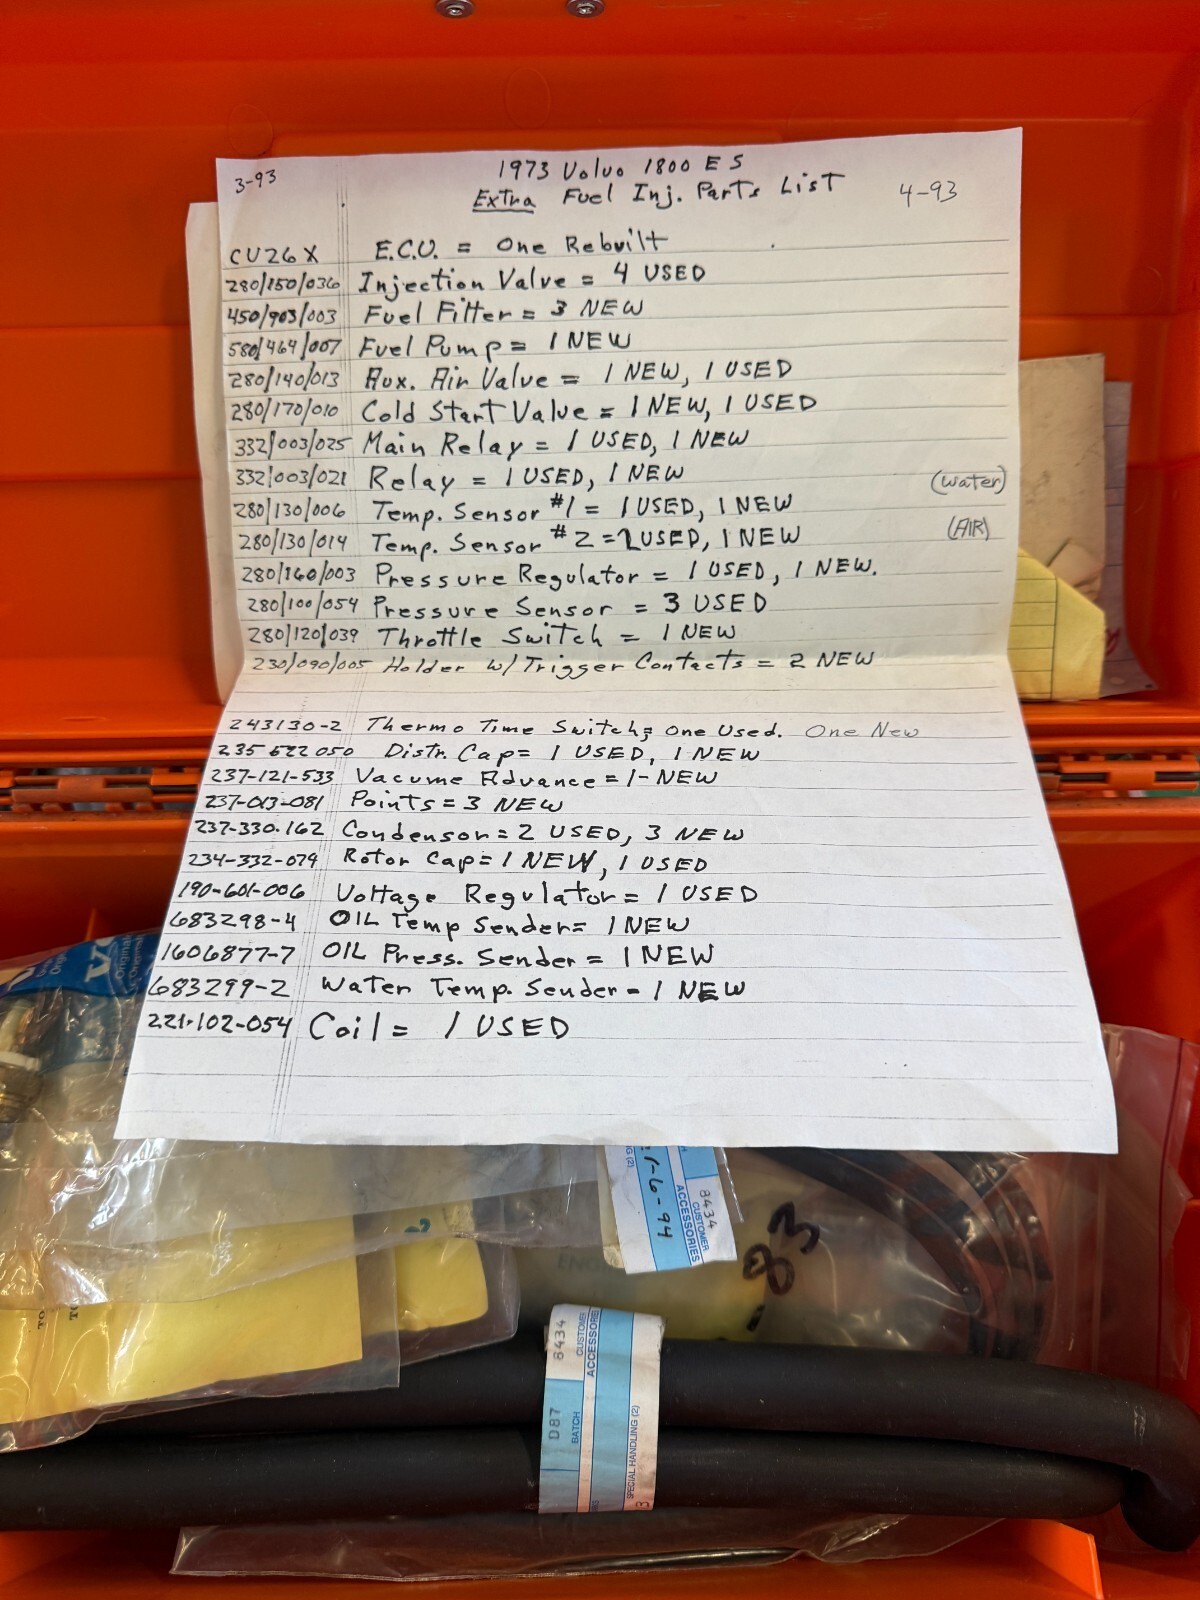 3-93
1973 Volvo 1800 E S
Extra Fuel Inj. Parts List
4-93
CU26X E.C.U. = One Rebuilt
280/150/036 Injection Valve = 4 USED
450/903/003 Fuel Filter = 3 NEW
580/464/007 Fuel Pump = 1 NEW
280/140/013 Aux. Air Valve = 1 NEW, 1 USED
280/170/010 Cold Start Valve = 1 NEW, 1 USED
332/003/025 Main Relay = 1 USED, 1 NEW
332/003/021 Relay = 1 USED, 1 NEW
280/130/006 Temp. Sensor #1 = 1 USED, 1 NEW (Water)
280/130/014 Temp. Sensor #2 = 2 USED, 1 NEW (AIR)
280/160/003 Pressure Regulator = 1 USED, 1 NEW.
280/100/054 Pressure Sensor = 3 USED
280/120/039 Throttle Switch = 1 NEW
230/090/005 Holder w/ Trigger Contacts = 2 NEW
243130-2 Thermo Time Switch = One Used. One New
235 622 050 Distr. Cap = 1 USED, 1 NEW
237-121-533 Vacume Advance = 1-NEW
237-013-081 Points = 3 NEW
237-330-162 Condensor = 2 USED, 3 NEW
234-332-079 Rotor Cap = 1 NEW, 1 USED
190-601-006 Voltage Regulator = 1 USED
683298-4 OIL Temp Sender = 1 NEW
1606877-7 OIL Press. Sender = 1 NEW
683299-2 Water Temp. Sender - 1 NEW
221-102-054 Coil = 1 USED
Original
1-6-94
8434
CUSTOMER
ACCESSORIES
83
8434
CUSTOMER
ACCESSORIES
D87
BATCH
SPECIAL HANDLING (2)